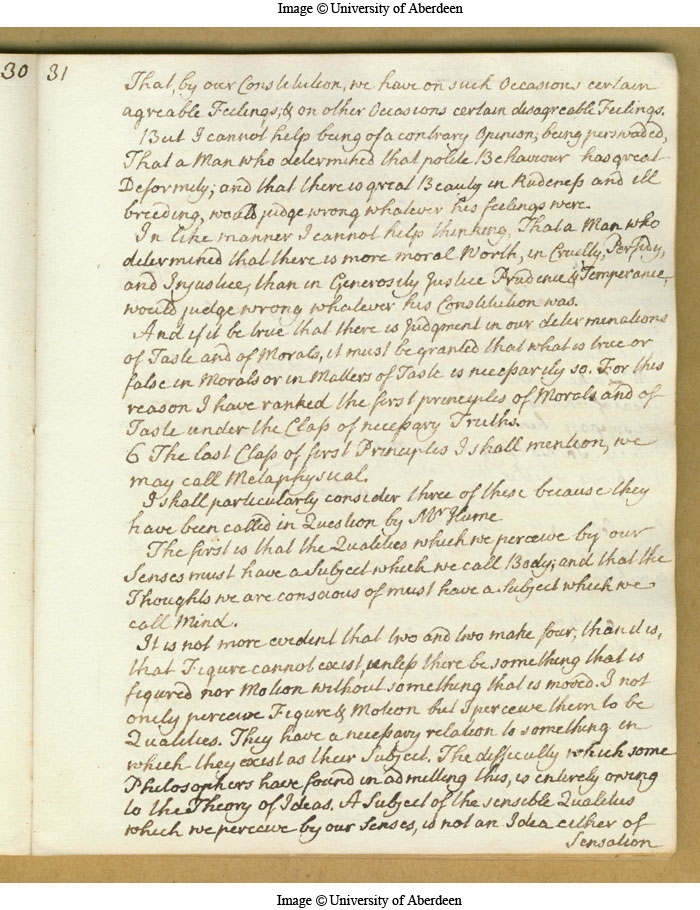 Image © University of Aberdeen
30 31
That, by our Constitution, we have on such Occasions certain
agreable Feelings, & on other Occasions certain disagreable Feelings.
But I cannot help being of a contrary Opinion; being perswaded,
That a Man who determined that polite Behaviour has great
Deformity; and that there is great Beauty in Rudeness and ill
breeding, would judge wrong whatever his feelings were.
In like manner I cannot help thinking, That a Man who
determined that there is more moral Worth, in Cruelty, Perfidy,
and Injustice, than in Generosity Justice Prudence & Temperance,
would judge wrong whatever his Constitution was.
And if it be true that there is Judgment in our determinations
of Taste and of Morals, it must be granted that what is true or
false in Morals or in Matters of Taste is necessarily so. For this
reason I have ranked the first principles of Morals and of
Taste under the Class of necessary Truths.
6 The last Class of first Principles I shall mention, we
may call Metaphysical.
I shall particularly consider three of these because they
have been called in Question by Mr Hume
The first is that the Qualities which we perceive by our
Senses must have a Subject which we call Body; and that the
Thoughts we are conscious of must have a Subject which we
call Mind.
It is not more evident that two and two make four, than it is,
that Figure cannot exist, unless there be something that is
figured nor Motion without something that is moved. I not
onely perceive Figure & Motion but I perceive them to be
Qualities. They have a necessary relation to something in
which they exist as their Subject. The difficulty which some
Philosophers have found in admitting this, is entirely owing
to the Theory of Ideas. A Subject of the sensible Qualities
which we perceive by our Senses, is not an Idea either of
Sensation
Image © University of Aberdeen